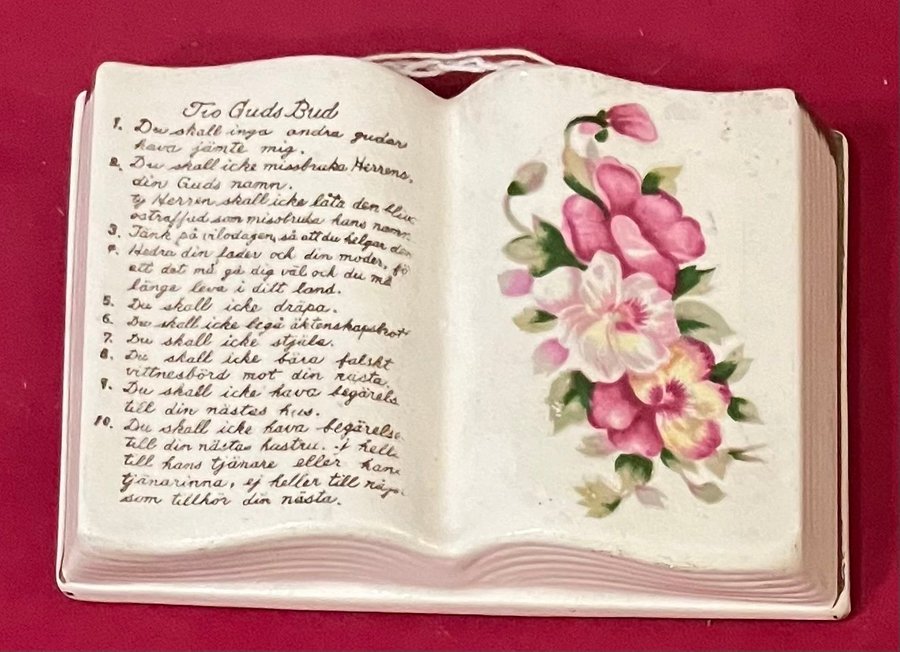 Tio Guds Bud
1. Du skall inga andra gudar
hava jämte mig.
2. Du skall icke missbruka Herrens,
din Guds namn.
ty Herren skall icke låta den bliva
ostraffad som missbruka hans namn
3. Tänk på vilodagen, så att du helgar den
4. Hedra din fader och din moder, för
att det må gå dig väl och du må
länge leva i ditt land.
5. Du skall icke dräpa.
6. Du skall icke begå äktenskapsbrott
7. Du skall icke stjäla.
8. Du skall icke bära falskt
vittnesbörd mot din nästa.
9. Du skall icke hava begärelse
till din nästas hus.
10. Du skall icke hava begärelse
till din nästas hustru. ej heller
till hans tjänare eller hans
tjänarinna, ej heller till någo
som tillhör din nästa.